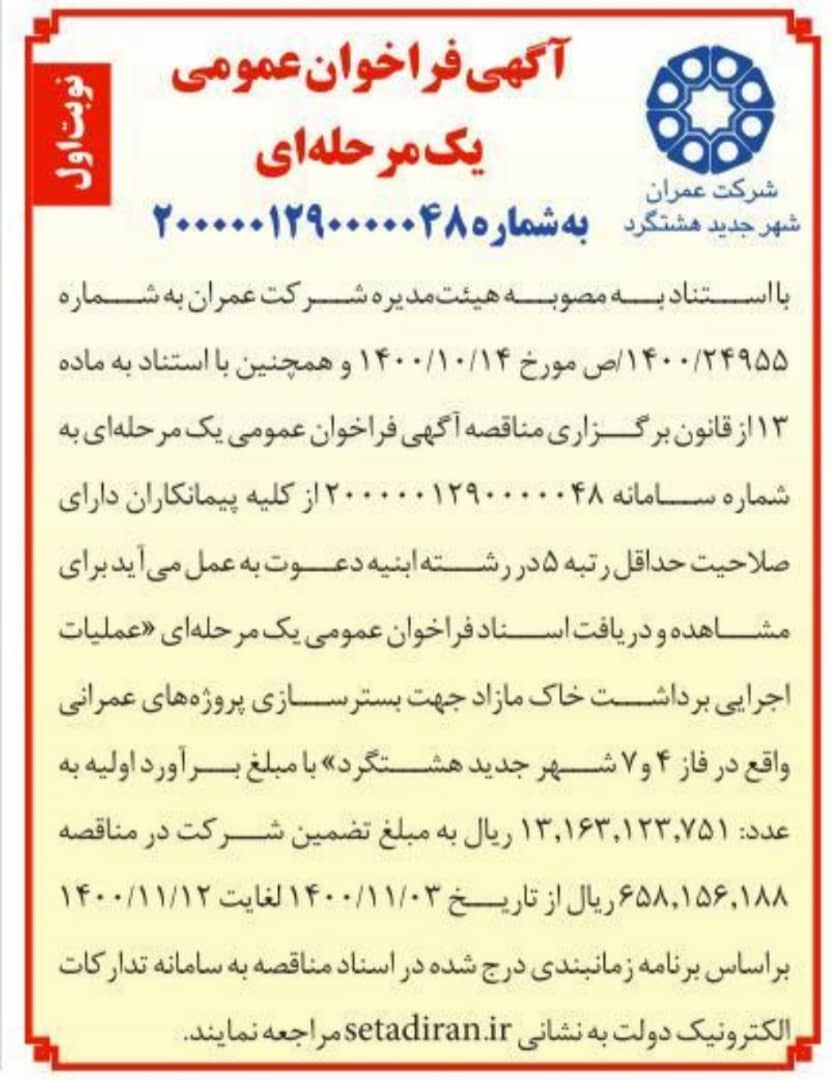 آگهی فراخوان عمومی
یک مرحله‌ای
به شماره ۲۰۰۰۰۰۱۲۹۰۰۰۰۰۴۸
نوبت اول
شرکت عمران
شهر جدید هشتگرد
با استناد به مصوبه هیئت‌مدیره شرکت عمران به شماره
۱۴۰۰/۲۴۹۵۵/ص مورخ ۱۴۰۰/۱۰/۱۴ و همچنین با استناد به ماده
۱۳ از قانون برگزاری مناقصه آگهی فراخوان عمومی یک مرحله‌ای به
شماره سامانه ۲۰۰۰۰۰۱۲۹۰۰۰۰۰۴۸ از کلیه پیمانکاران دارای
صلاحیت حداقل رتبه ۵ در رشته ابنیه دعوت به عمل می‌آید برای
مشاهده و دریافت اسناد فراخوان عمومی یک مرحله‌ای «عملیات
اجرایی برداشت خاک مازاد جهت بسترسازی پروژه‌های عمرانی
واقع در فاز ۴ و ۷ شهر جدید هشتگرد» با مبلغ برآورد اولیه به
عدد: ۱۳,۱۶۳,۱۲۳,۷۵۱ ریال به مبلغ تضمین شرکت در مناقصه
۶۵۸,۱۵۶,۱۸۸ ریال از تاریخ ۱۴۰۰/۱۱/۰۳ لغایت ۱۴۰۰/۱۱/۱۲
براساس برنامه زمانبندی درج شده در اسناد مناقصه به سامانه تدارکات
الکترونیک دولت به نشانی setadiran.ir مراجعه نمایند.